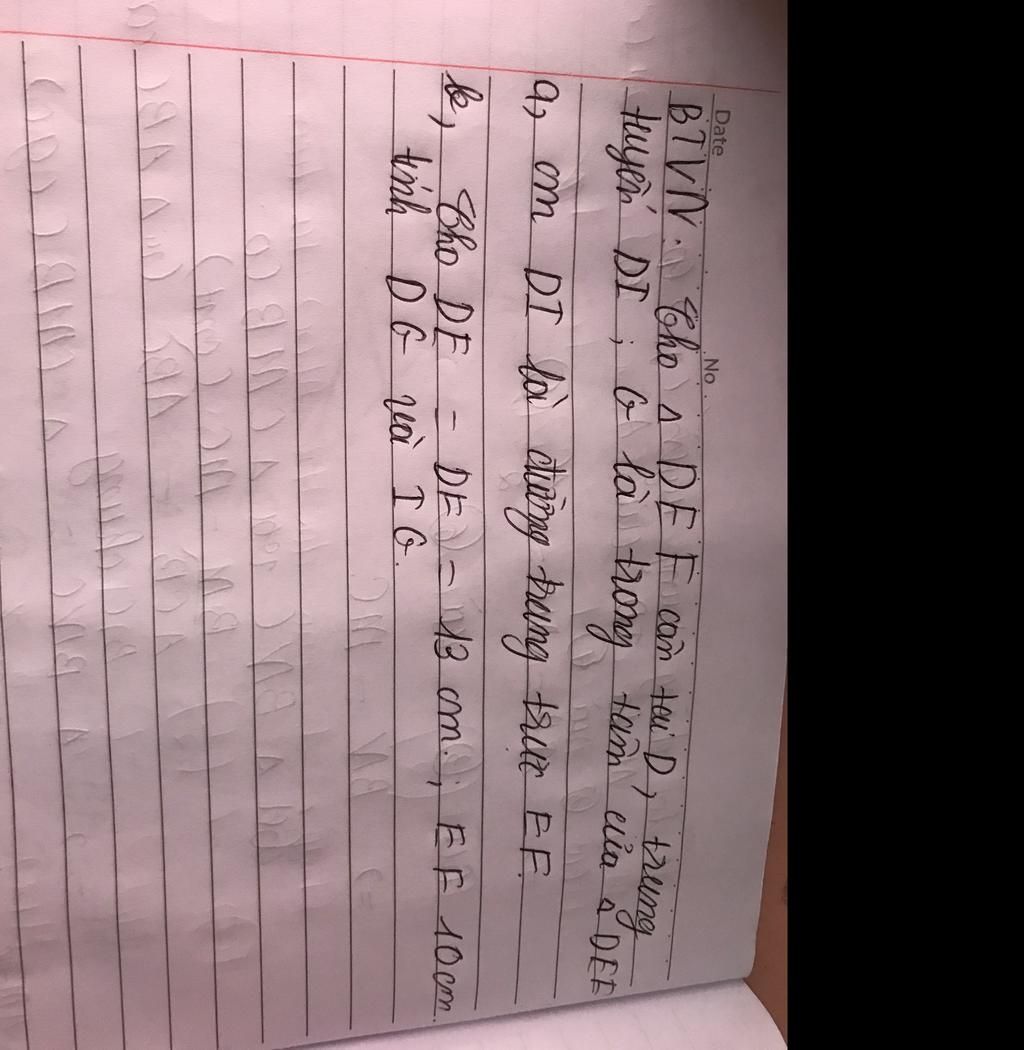 Date
No.
BTVN. Cho Δ DEF cân tại D, trung
tuyến DI, G là trọng tâm của Δ DEF
a, cm DI là đường trung trực EF.
b, Cho DE = DF = 13 cm, EF 10cm.
tính DG và IG.